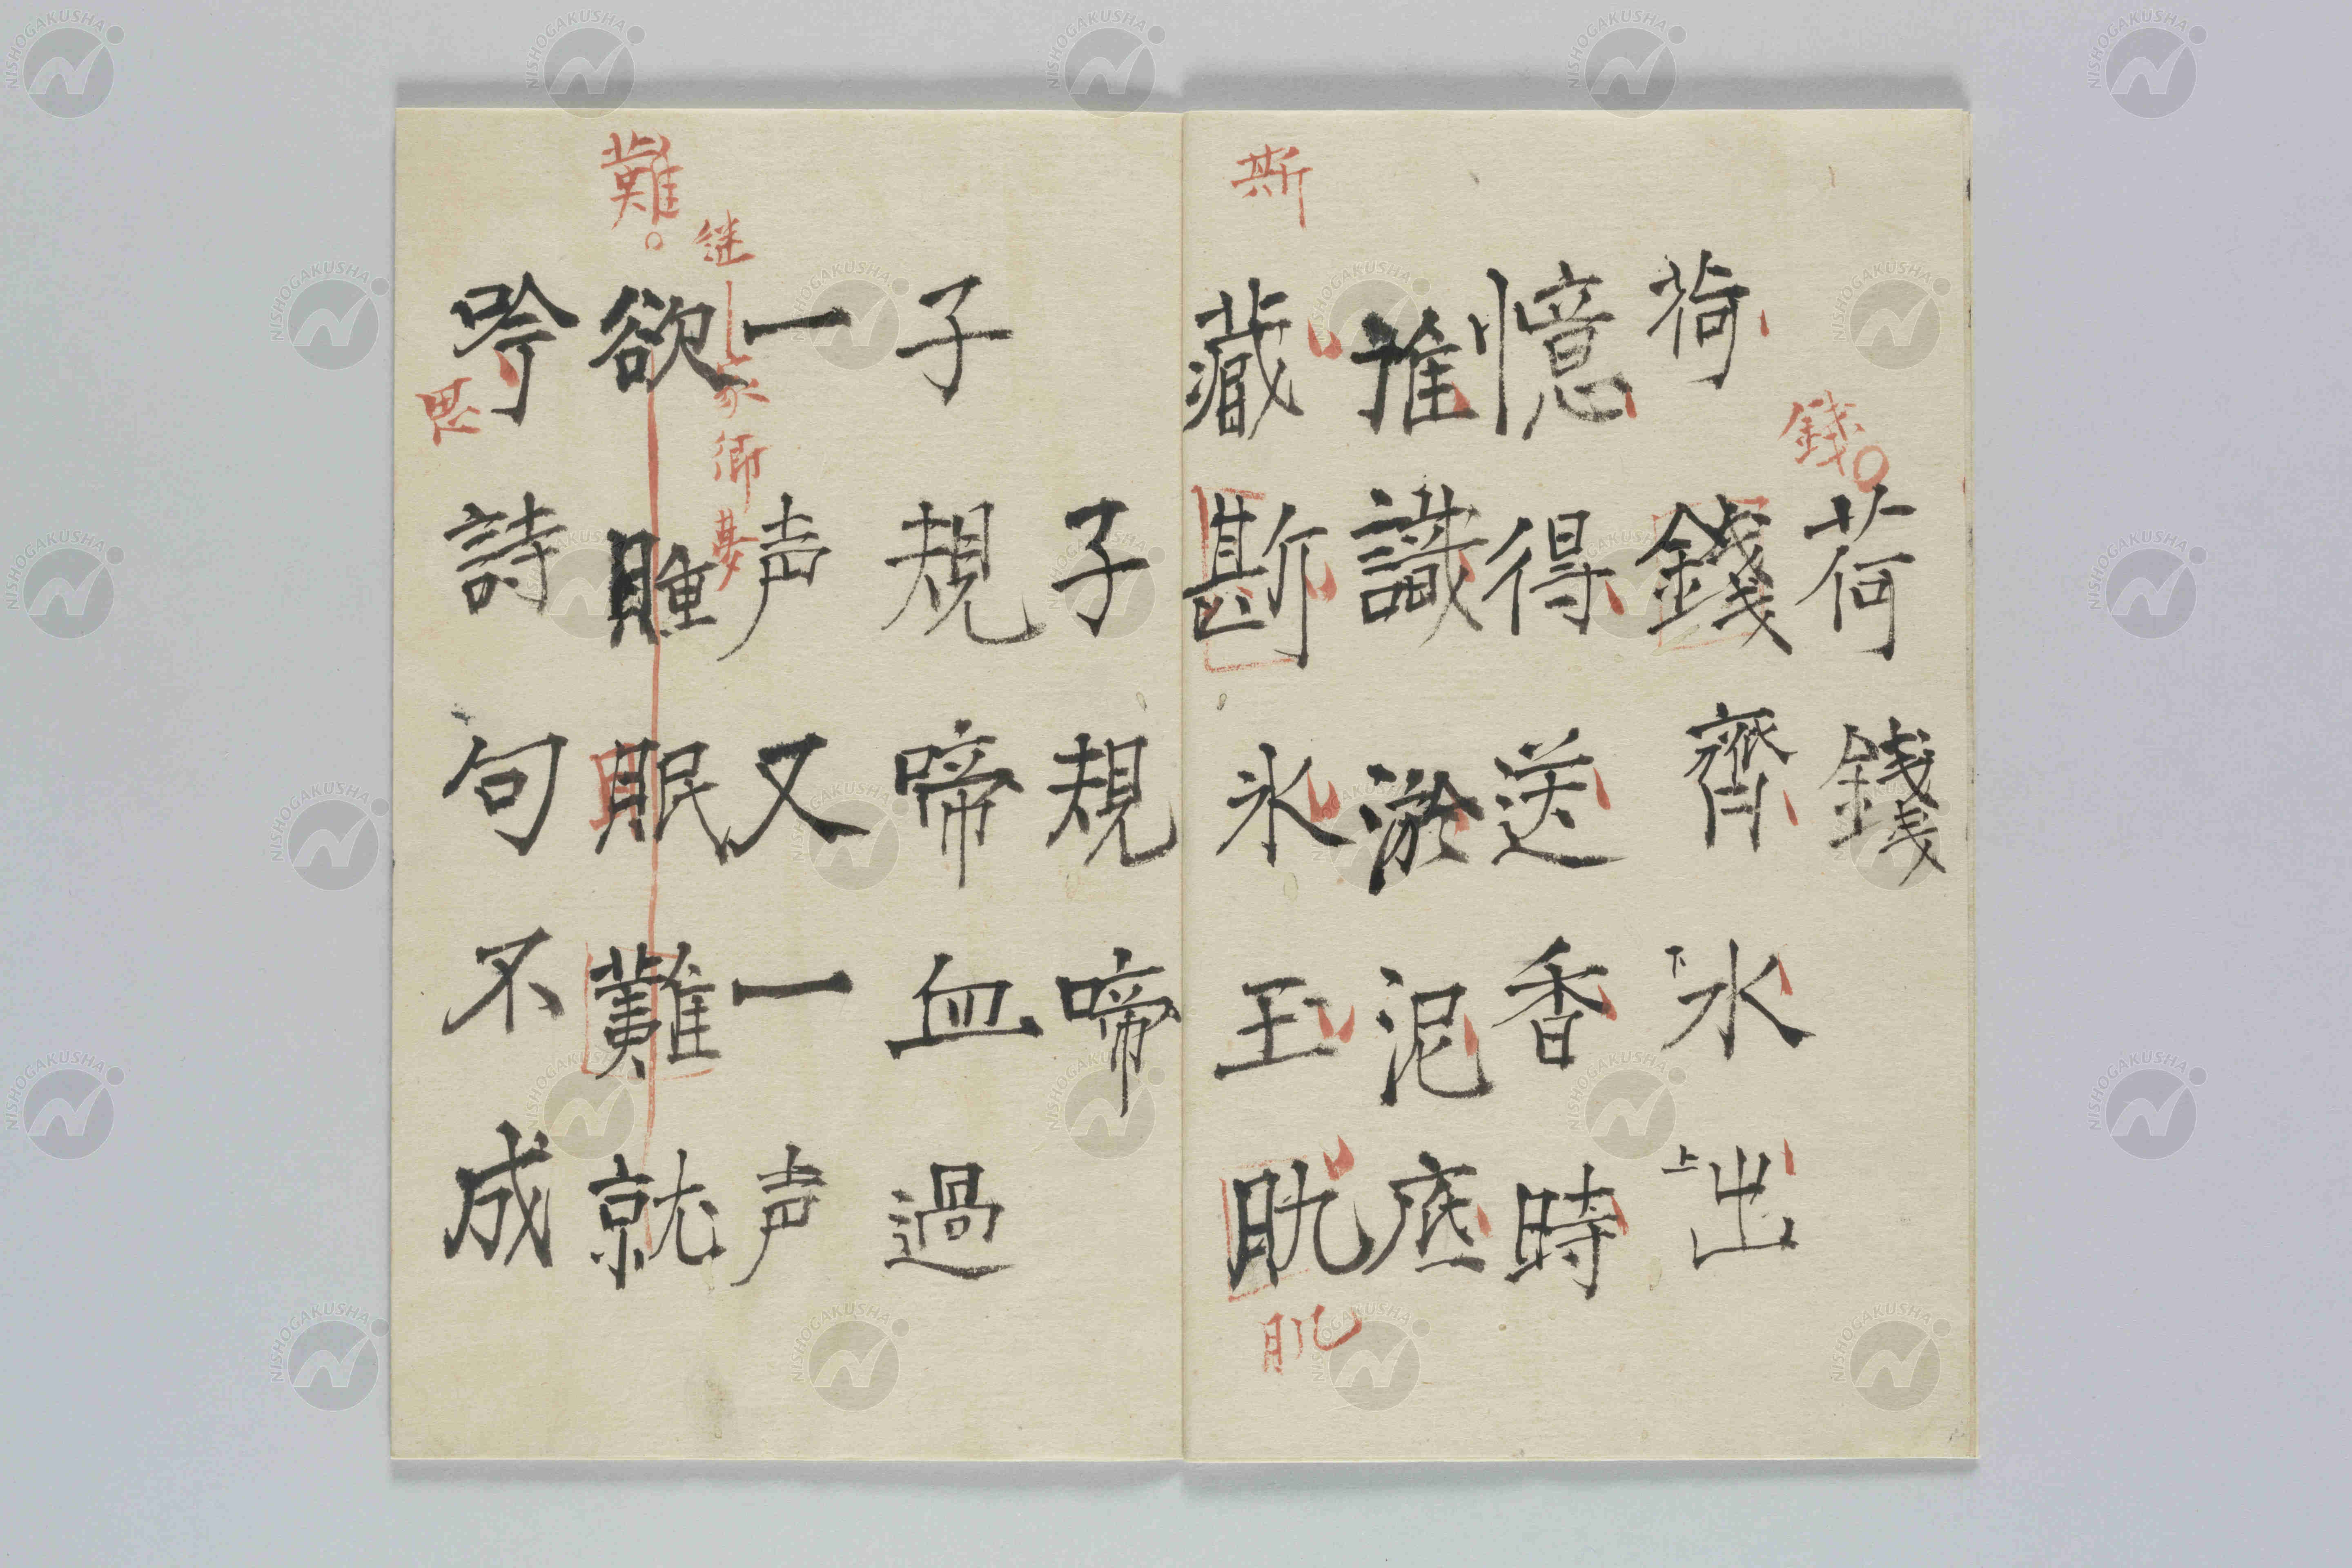 荷錢
荷錢齊下氷上出
憶得送香時
誰識淤泥底
藏斯氷玉肌
斯
錢
肌
子規啼
子規啼血過
一声又一声
欲睡眠難就
吟詩句不成
難
継
家
御
夢
思
NISHOGAKUSHA